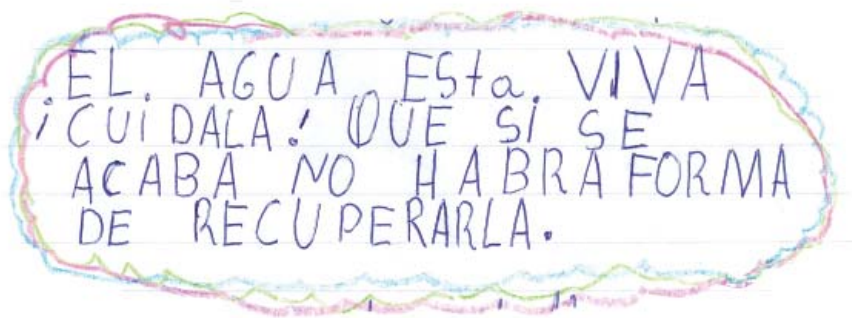 EL AGUA ESta VIVA
¡CUiDALA! QUE SI SE
ACABA NO HABRA FORMA
DE RECUPERARLA.